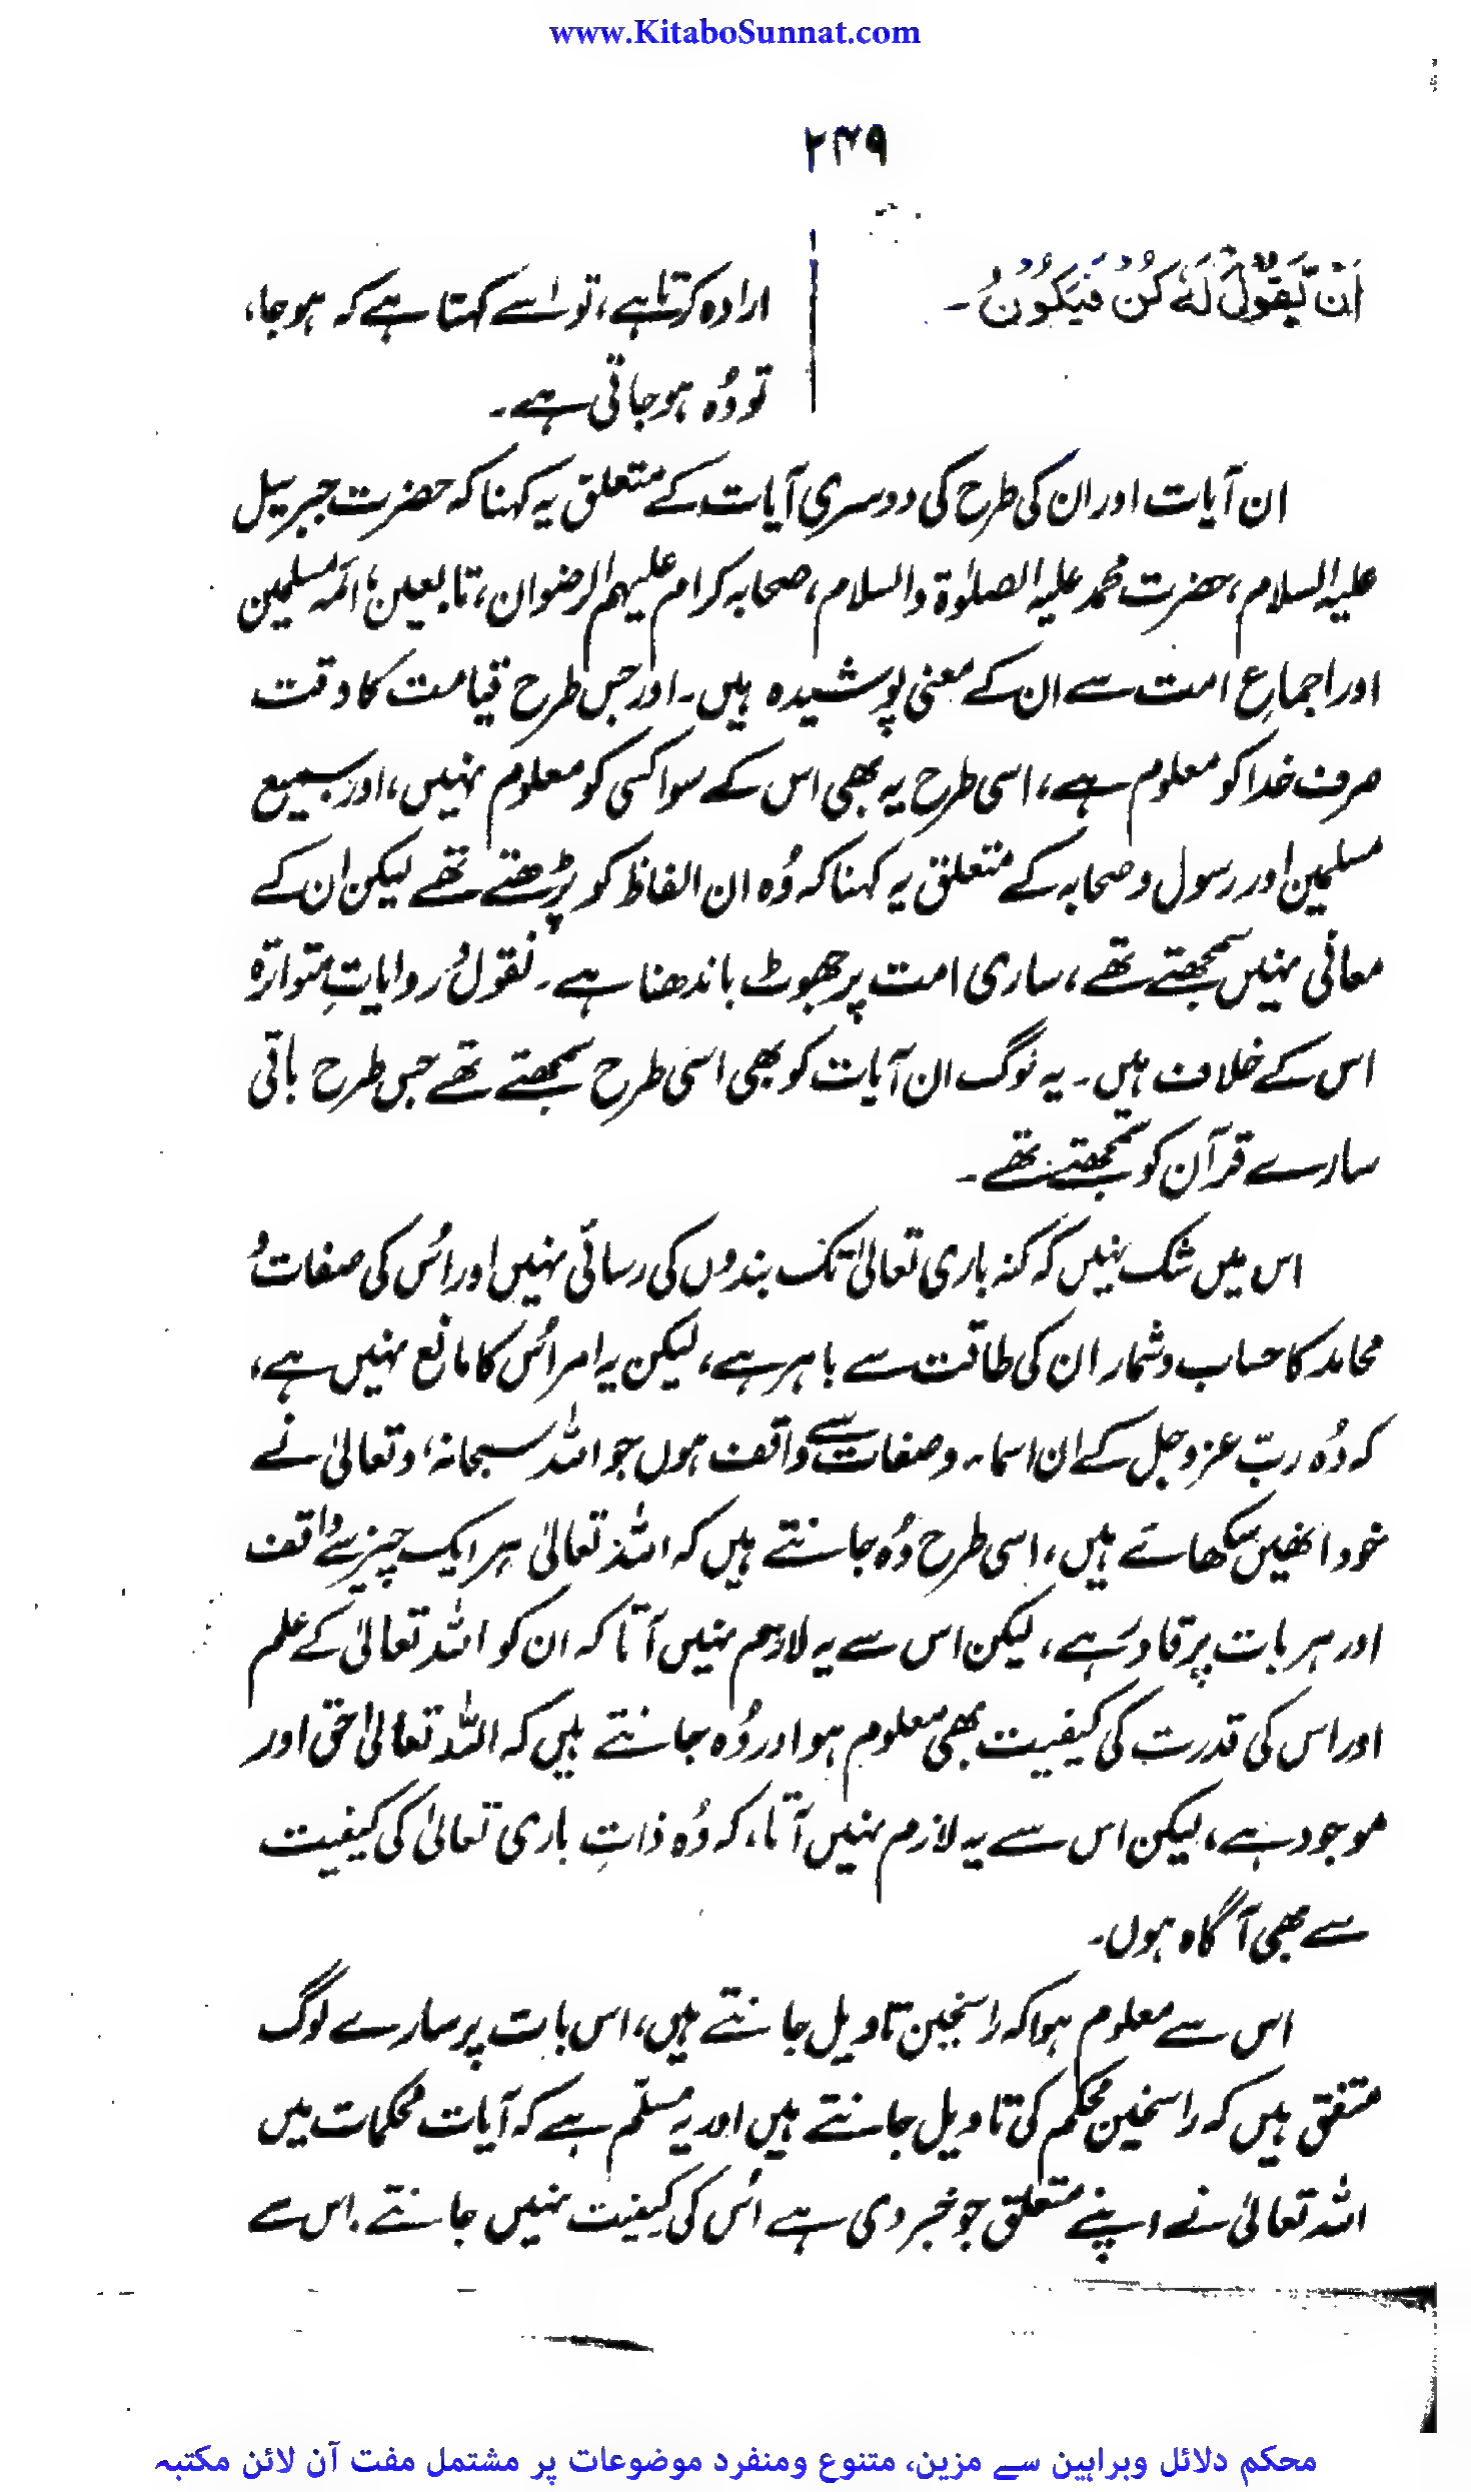 www.KitaboSunnat.com
۲۴۹
اَنْ یَّقُوْلَ لَهٗ كُنْ فَيَكُوْنُ۔
ارادہ کرتا ہے، تو اسے کہتا ہے کہ ہو جا،
تو وُہ ہو جاتی ہے۔
ان آیات اور ان کی طرح کی دوسری آیات کے متعلق یہ کہنا کہ حضرت جبریل
علیہ السلام، حضرت محمد علیہ الصلوٰۃ والسلام، صحابہ کرام علیہم الرضوان، تابعین، ائمہ مسلمین
اور اجماعِ امت سے ان کے معنی پوشیدہ ہیں۔ اور جس طرح قیامت کا وقت
صرف خدا کو معلوم ہے، اسی طرح یہ بھی اس کے سوا کسی کو معلوم نہیں، اور جمیع
مسلمین اور رسول و صحابہ کے متعلق یہ کہنا کہ وُہ ان الفاظ کو پڑھتے تھے لیکن ان کے
معانی نہیں سمجھتے تھے، ساری امت پر جھوٹ باندھنا ہے۔ نقول و روایاتِ متواترہ
اس کے خلاف ہیں۔ یہ لوگ ان آیات کو بھی اسی طرح سمجھتے تھے جس طرح باقی
سارے قرآن کو سمجھتے تھے۔
اس میں شک نہیں کہ کنہ باری تعالیٰ تک بندوں کی رسائی نہیں اور اُس کی صفات و
محامد کا حساب و شمار ان کی طاقت سے باہر ہے، لیکن یہ امر اُس کا مانع نہیں ہے،
کہ وُہ ربّ عزوجل کے ان اسماء و صفات سے واقف ہوں جو اللہ سبحانہ، وتعالیٰ نے
خود انھیں سکھائے ہیں، اسی طرح وُہ جانتے ہیں کہ اللہ تعالیٰ ہر ایک چیز سے واقف
اور ہر بات پر قادر ہے، لیکن اس سے یہ لازم نہیں آتا کہ ان کو اللہ تعالیٰ کے علم
اور اس کی قدرت کی کیفیت بھی معلوم ہو اور وُہ جانتے ہیں کہ اللہ تعالیٰ حق اور
موجود ہے، لیکن اس سے یہ لازم نہیں آتا، کہ وُہ ذاتِ باری تعالیٰ کی کیفیت
سے بھی آگاہ ہوں۔
اس سے معلوم ہوا کہ راسخین تاویل جانتے ہیں، اس بات پر سارے لوگ
متفق ہیں کہ راسخین محکم کی تاویل جانتے ہیں اور یہ مسلّم ہے کہ آیات محکمات میں
اللہ تعالیٰ نے اپنے متعلق جو خبر دی ہے اُس کی کیفیت نہیں جانتے۔ اس سے
محکم دلائل وبراہین سے مزین، متنوع ومنفرد موضوعات پر مشتمل مفت آن لائن مکتبہ